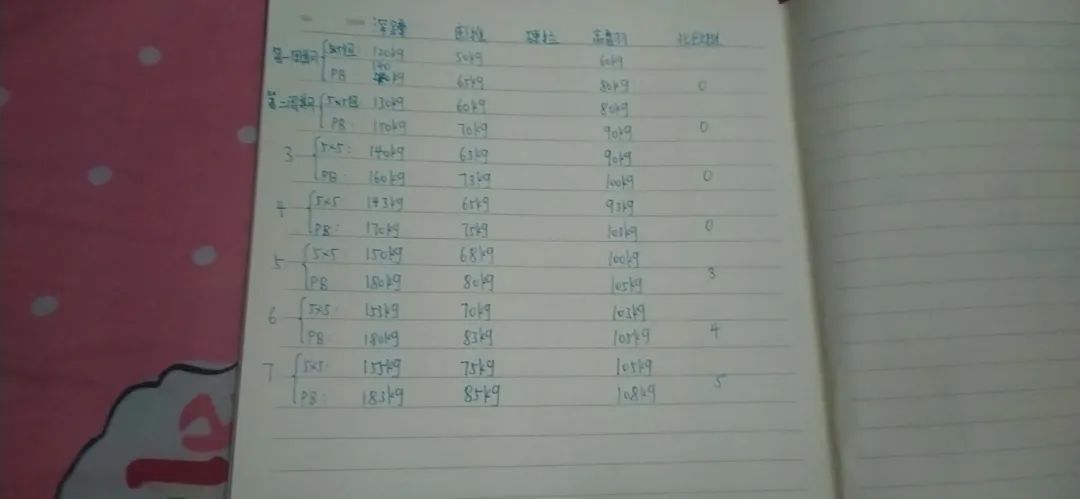 深蹲 卧推 硬拉 高翻 
第一周期 5×5组 120kg 50kg 60kg
PB 140kg 65kg 80kg 0
第二周期 5×5组 130kg 60kg 80kg
PB: 150kg 70kg 90kg 0
3 5×5: 140kg 63kg 90kg
PB: 160kg 73kg 100kg 0
4 5×5 143kg 65kg 93kg
PB: 170kg 75kg 103kg 0
5 5×5 150kg 68kg 100kg
PB 180kg 80kg 105kg 3
6 5×5: 153kg 70kg 103kg
PB: 180kg 83kg 105kg 4
7 5×5: 155kg 75kg 105kg
PB: 183kg 85kg 108kg 5
le